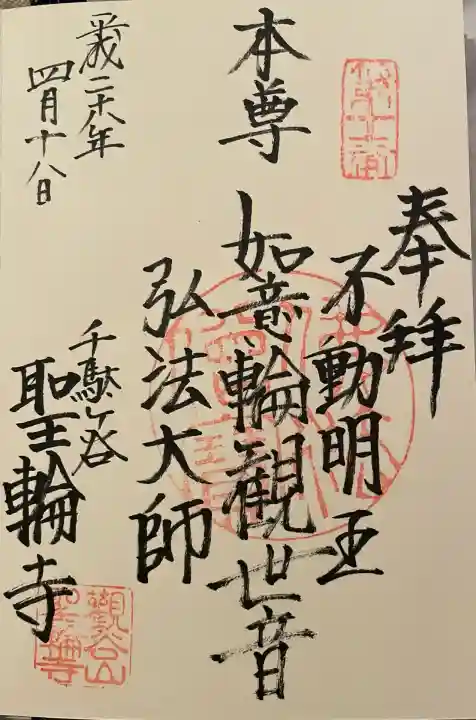 奉拝
不動明王
本尊 如意輪観世音
弘法大師
千駄ヶ谷
聖輪寺
平成二十八年
四月十八日
觀谷山
聖輪寺